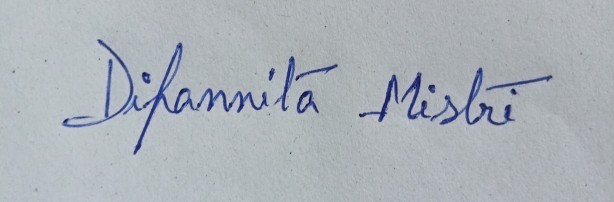 Dipannita Mistri